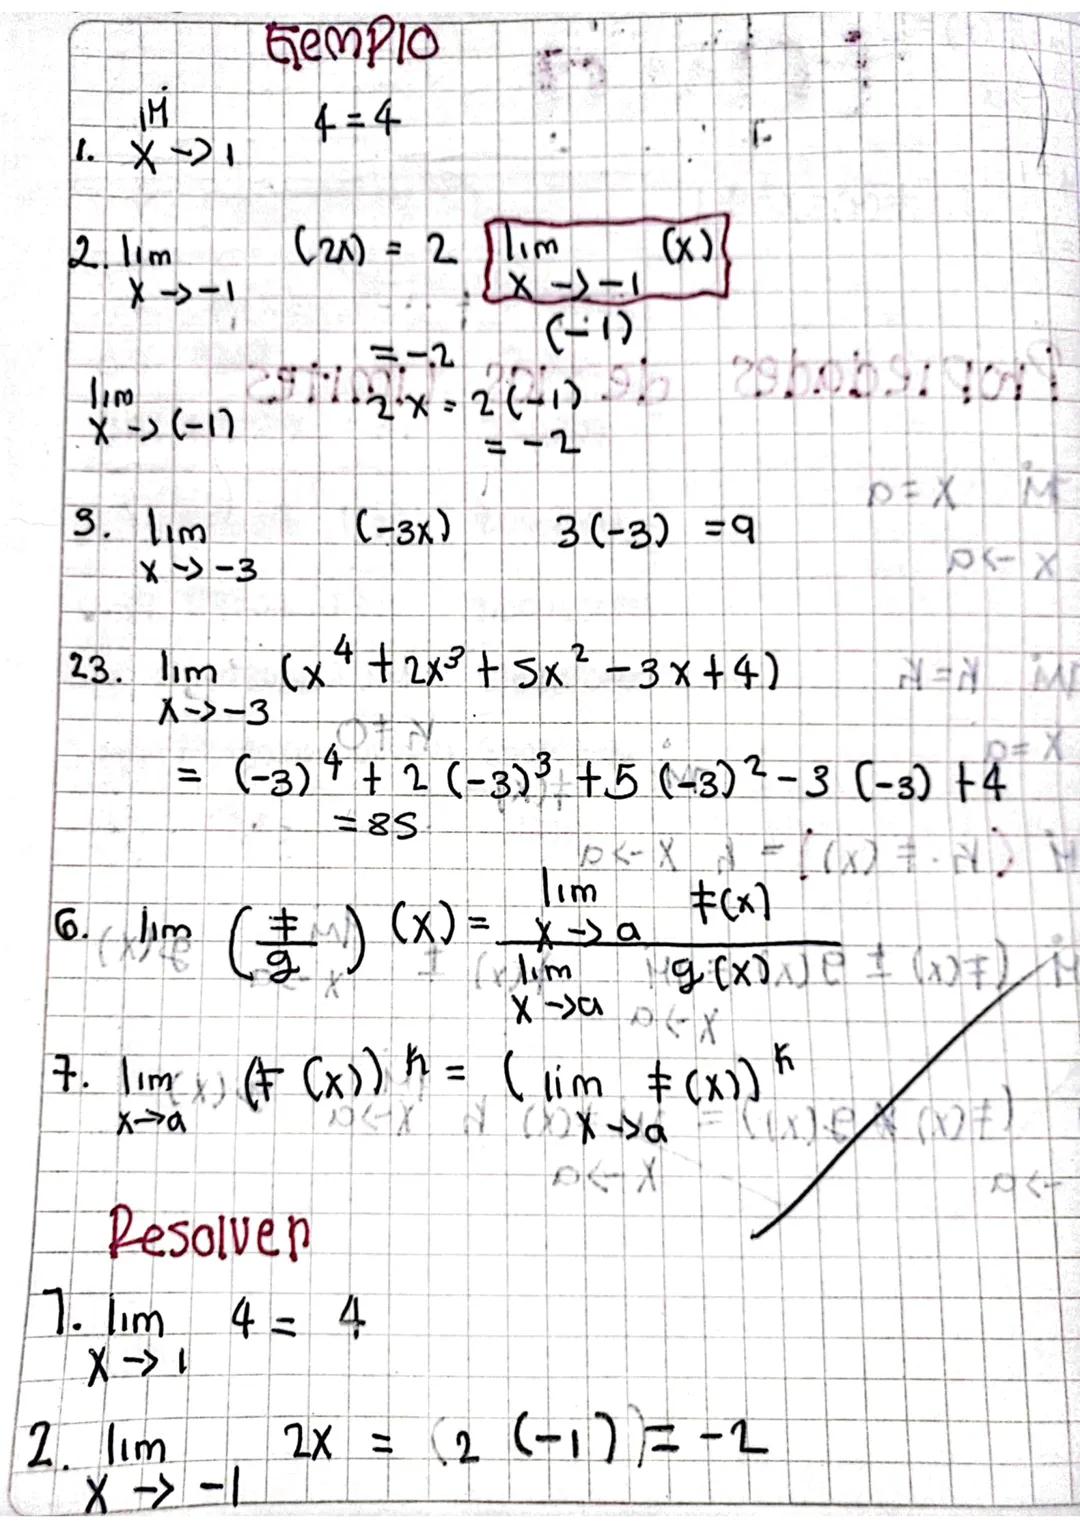 Ejemplo
1. lím x → 1 4 = 4
2. lim x → -1 (2x) = 2 lim x → -1 (x)
(-1)
= -2
lim x → (-1) 2x = 2(-1)
= -2
3. lim x → -3 (-3x) 3(-3) = 9
23. lim x → -3 (x⁴ + 2x³ + 5x² - 3x + 4)
= (-3)⁴ + 2(-3)³ + 5(-3)² - 3(-3) + 4
= 85
6. lim (f/g)(x) = lim x → a f(x) / lim x → a g(x)
7. lim x → a (f(x))ᵏ = (lim x → a f(x))ᵏ
Resolver
1. lim x → 1 4 = 4
2. lim x → -1 2x = (2(-1)) = -2